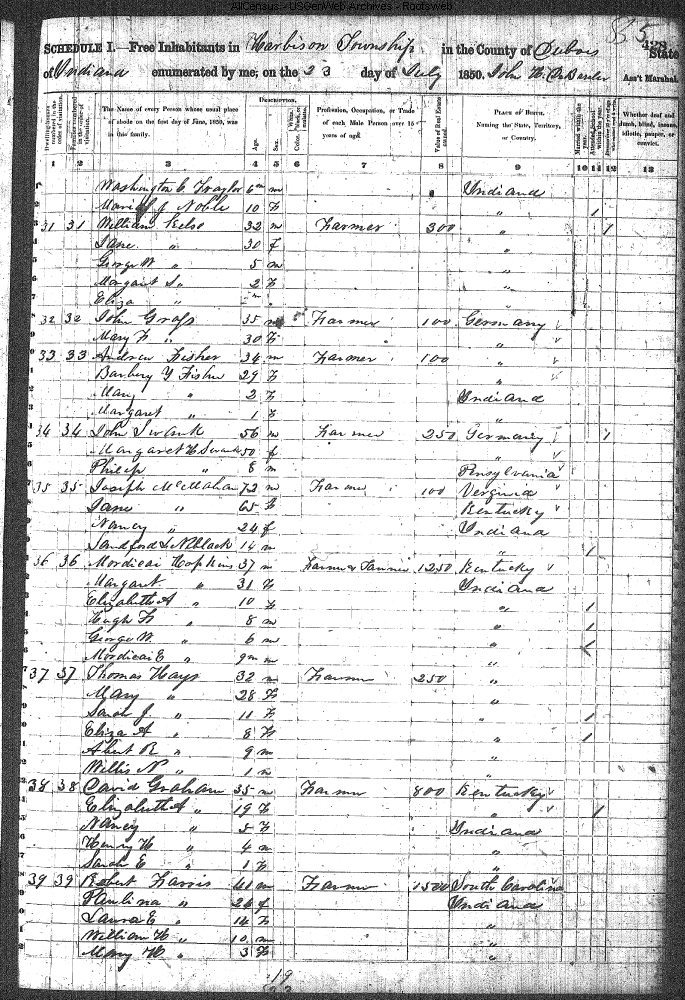 AllCensus - USGenWeb Archives - Rootsweb
85
428
SCHEDULE I.—Free Inhabitants in Harbison Township in the County of Dubois State
of Indiana enumerated by me, on the 23 day of July 1850. Ass't Marshal.
Dwelling-houses numbered in the order of visitation. Families numbered in the order of visitation. The Name of every Person whose usual place of abode on the first day of June, 1850, was in this family. DESCRIPTION. Age. Sex. Color, White, black, or mulatto. Profession, Occupation, or Trade of each Male Person over 15 years of age. Value of Real Estate owned. PLACE OF BIRTH. Naming the State, Territory, or Country. Married within the year. Attended School within the year. Whether deaf and dumb, blind, insane, idiotic, pauper, or convict.
1 2 3 4 5 6 7 8 9 10 11 12 13
Washington C. Traylor 6m m Indiana
Noble 10 F " /
31 31 William Kelso 32 m Farmer 300 " /
Jane " 30 f "
George W " 5 m "
Margaret " 2 F "
Eliza " "
32 32 John Grass 35 m Farmer 100 Germany
Mary F " 30 F "
33 33 Andrew Fisher 34 m Farmer 100 "
Barbery Y Fisher 29 F "
Mary " 2 F Indiana
Margaret " 1 F "
34 34 John Swank 56 m Farmer 250 Germany /
Margaret H Swank 50 f "
Philip " 8 m Pensylvania
35 35 Joseph McMahan 72 m Farmer 100 Verginia
Jane " 65 F Kentucky
Nancy " 24 f Indiana
Sandford L Niblack 14 m " /
36 36 Mordicai Hopkins 37 m Farmer & Tanner 1250 Kentucky
Margaret " 31 F Indiana
Elizabeth A " 10 F " /
Hugh " 8 m " /
George W. " 6 m " /
Mordicai E " 9m m "
37 37 Thomas Hays 32 m Farmer 250 "
Mary " 28 F "
Sarah J. " 11 F " /
Eliza A " 8 F " /
Albert R " 9 m "
Willis N " 1 m "
38 38 David Graham 35 m Farmer 800 Kentucky
Elizabeth A " 19 F " /
Nancy " 5 F Indiana
Henry H " 4 m "
Sarah E " 1 F "
39 39 Robert Harris 41 m Farmer 1500 South Carolina
Paulina " 26 f Indiana
Laura E " 14 F "
William H " 10 m "
Mary " 3 F "
19